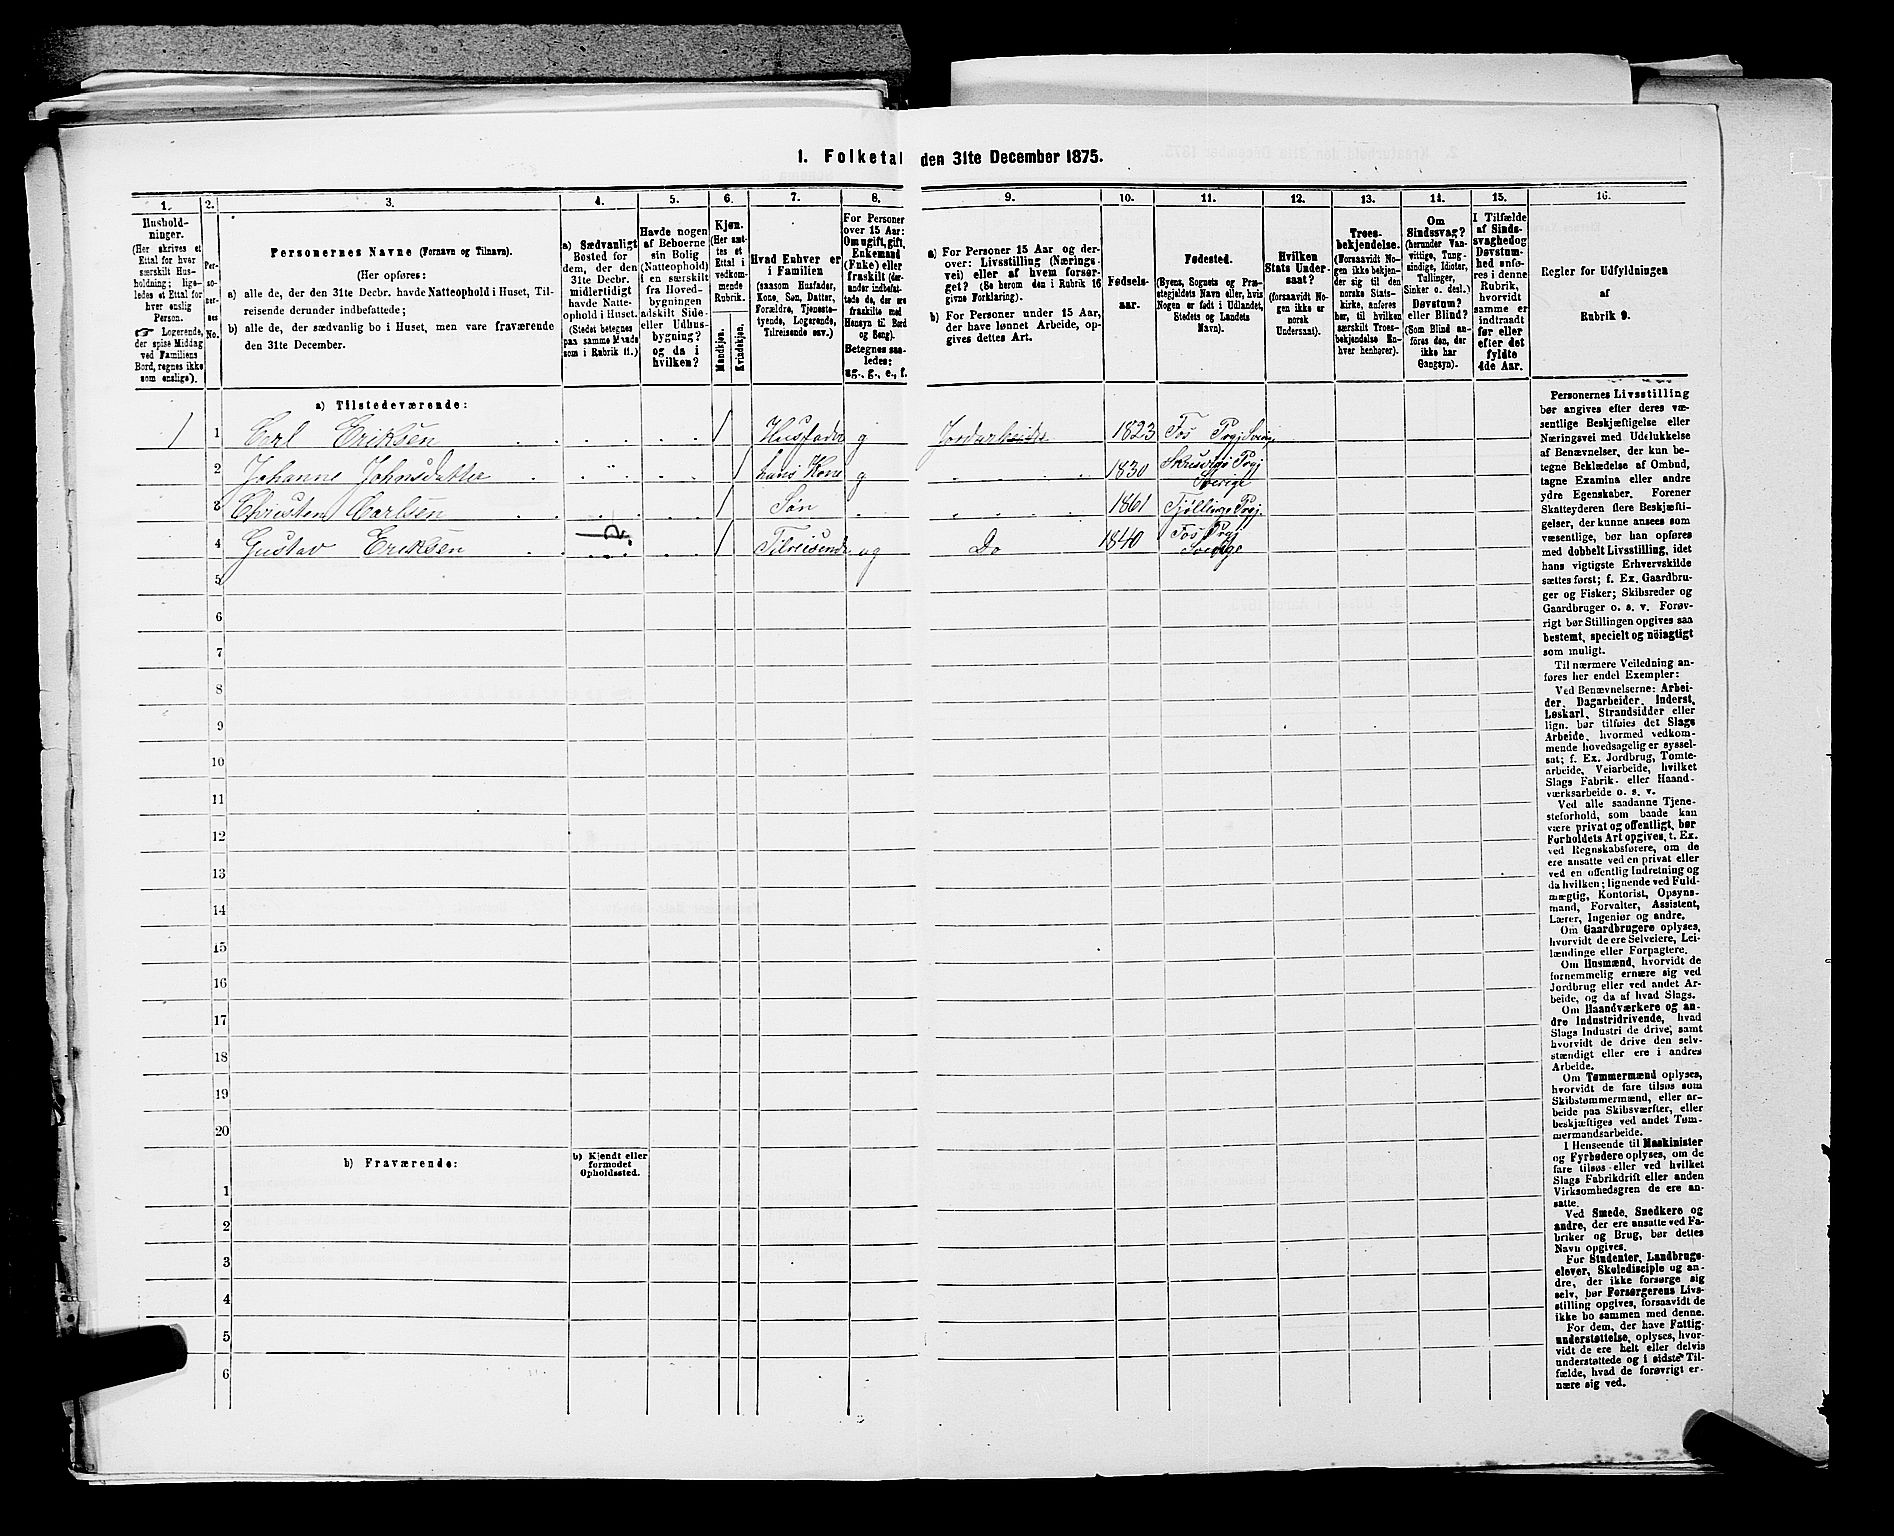 1. Folketal den 31te December 1875.
1.
Hushold-
ninger.
(Her skrives et
Ettal for hver
særskilt Hus-
holdning; lige-
ledes et Ettal for
hver enslig
Person.
☞ Logerende,
der spise Middag
ved Familiens
Bord, regnes ikke
som enslige).
2.
Per-
so-
ner-
nes
No.
3.
Personernes Navne (Fornavn og Tilnavn).
(Her opføres:
a) alle de, der den 31te Decbr. havde Natteophold i Huset, Til-
reisende derunder indbefattede;
b) alle de, der sædvanlig bo i Huset, men vare fraværende
den 31te December.
4.
a) Sædvanligt
Bosted for
dem, der den
31te Decbr.
midlertidigt
havde Natte-
ophold i Huset.
(Stedet betegnes
paa samme Maade
som i Rubrik 11.)
5.
Havde nogen
af Beboerne
sin Bolig
(Natteophold)
i en særskilt
fra Hoved-
bygningen
adskilt Side-
eller Udhus-
bygning?
og da i
hvilken?
6.
Kjøn.
(Her sæt-
tes et
Ettal i
vedkom-
mende
Rubrik.
Mandkjøn.
Kvindekjøn.
7.
Hvad Enhver er
i Familien
(saasom Husfader,
Kone, Søn, Datter,
Forældre, Tjeneste-
tyende, Logerende,
Tilreisende osv.)
8.
For Personer
over 15 Aar:
Om ugift, gift,
Enkemand
(Enke) eller
fraskilt
Betegnes saa-
ledes:
ug., g., e., f.
9.
a) For Personer 15 Aar og der-
over: Livsstilling (Nærings-
vei) eller af hvem forsør-
get? (Se herom den i Rubrik 16
givne Forklaring).
b) For Personer under 15 Aar,
der have lønnet Arbeide, op-
gives dettes Art.
10.
Fødsels-
aar.
11.
Fødested.
(Byens, Sognets og Præ-
stegjeldets Navn eller, hvis
Nogen er født i Udlandet,
Stedets og Landets
Navn).
12.
Hvilken
Stats Under-
saat?
(forsaavidt No-
gen ikke er
norsk
Undersaat).
13.
Troes-
bekjendelse.
(Forsaavidt No-
gen ikke bekjen-
der sig til den
norske Stats-
kirke, anføres
her, til hvilken
særskilt Troes-
bekjendelse En-
hver henhører).
14.
Om
Sindssvag?
(herunder Van-
vittige, Tung-
sindige, Idioter,
Tullinger,
Sinker o. desl.)
Døvstum?
eller Blind?
(Som Blind an-
føres den, der
ikke har
Gangsyn).
15.
I Tilfælde
af Sinds-
svaghed og
Døvstum-
hed anfø-
res i denne
Rubrik,
hvorvidt
samme er
indtraadt
før eller
efter det
fyldte
4de Aar.
16.
Regler for Udfyldningen
af
Rubrik 9.
a) Tilstedeværende:
1 1 Erl Eriksen 1 Husfader g Jordarbeide 1823 Fos Pgj Sverige
2 Johanne Johnsdatter 1 hans Kone g 1830 Pgj Sverige
3 Christen Carlsen 1 Søn 1861 Tjøllinge Pgj.
4 Gustav Eriksen ? 1 Tilreisende ug Do 1840 Fos Pgj Sverige
5
6
7
8
9
10
11
12
13
14
15
16
17
18
19
20
b) Fraværende:
b) Kjendt eller
formodet
Opholdssted.
1
2
3
4
5
6
Personernes Livsstilling
bør angives efter deres væ-
sentlige Beskjæftigelse eller
Næringsvei med Udelukkelse
af Benævnelser, der kun be-
tegne Beklædelse af Ombud,
tagne Examina eller andre
ydre Egenskaber. Forener
Skatteyderen flere Beskjæfti-
gelser, der kunne ansees som
væsentlige, bør han opføres
med dobbelt Livsstilling, idet
hans vigtigste Erhvervskilde
sættes først; f. Ex. Gaardbru-
ger og Fisker; Skibsreder og
Gaardbruger o. s. v. Forøv-
rigt bør Stillingen opgives saa
bestemt, specielt og nöiagtigt
som muligt.
Til nærmere Veiledning an-
føres her endel Exempler:
Ved Benævnelserne: Arbei-
der, Dagarbeider, Inderst,
Løskarl, Strandsidder eller
lign. bør tilføies det Slags
Arbeide, hvormed vedkom-
mende hovedsagelig er syssel-
sat; f. Ex. Jordbrug, Tømte-
arbeide, Veiarbeide, hvilket
Slags Fabrik- eller Haand-
værksarbeide o. s. v.
Ved alle saadanne Tjene-
steforhold, som baade kan
være privat og offentligt, bør
Forholdets Art opgives, t. Ex.
ved Regnskabsførere, om de
ere ansatte ved en privat eller
ved en offentlig Indretning og
da hvilken; lignende ved Fuld-
mægtig, Kontorist, Opsyns-
mand, Forvalter, Assistent,
Lærer, Ingeniør og andre.
Om Gaardbrugere oplyses,
hvorvidt de ere Selveiere, Lei-
lændinge eller Forpagtere.
Om Husmænd, hvorvidt de
fornemmelig ernære sig ved
Jordbrug eller ved andet Ar-
beide, og da af hvad Slags.
Om Haandværkere og an-
dre Industridrivende, hvad
Slags Industri de drive, samt
hvorvidt de drive den selv-
stændigt eller ere i andres
Arbeide.
Om Tømmermænd oplyses,
hvorvidt de fare tilsøs som
Skibstømmermænd, eller ar-
beide paa Skibsværfter, eller
beskjæftiges ved andet Tøm-
mermandsarbeide.
I Henseende til Maskinister
og Fyrbødere oplyses, om de
fare tilsøs eller ved hvilket
Slags Fabrikdrift eller anden
Virksomhedsgren de ere an-
satte.
Ved Smede, Snedkere og
andre, der ere ansatte ved Fa-
briker og Brug, bør dettes
Navn opgives.
For Studenter, Landbrugs-
elever, Skoledisciple og an-
dre, der ikke forsørge sig
selv, bør Forsørgerens Livs-
stilling opgives, forsaavidt de
ikke bo sammen med denne.
For dem, der have Fattig-
understøttelse, oplyses, hvor-
vidt de ere helt eller delvis
understøttede og i sidste Til-
fælde, hvad de forøvrigt er-
nære sig ved.